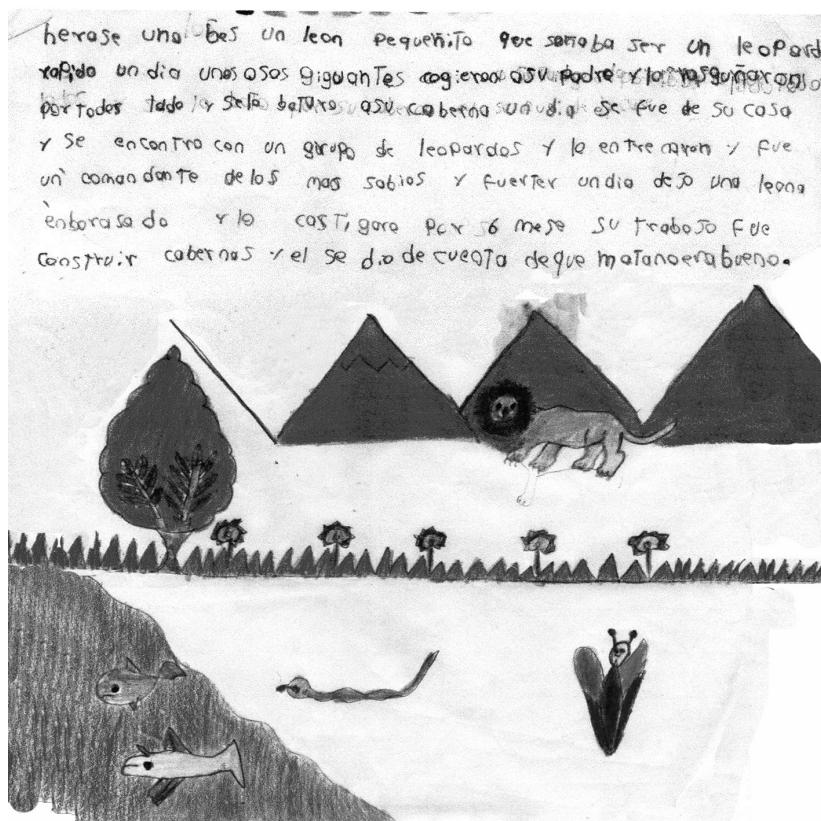 herase una bes un leon pequeñito que soñaba ser un leopard
rapido un dia unos osos giguantes cogieron asu padre y lo rasguñaron
por todos lado y selo asu caberna un dia se fue de su casa
y se encontro con un gurupo de leopardos y lo entrenaron y fue
un comandante delos mas sabios y fuerter undia dejo una leona
enborasada y lo castigaro por 6 mese su trabajo fue
construir cabernas y el se dio de cuenta deque matanoerabueno.